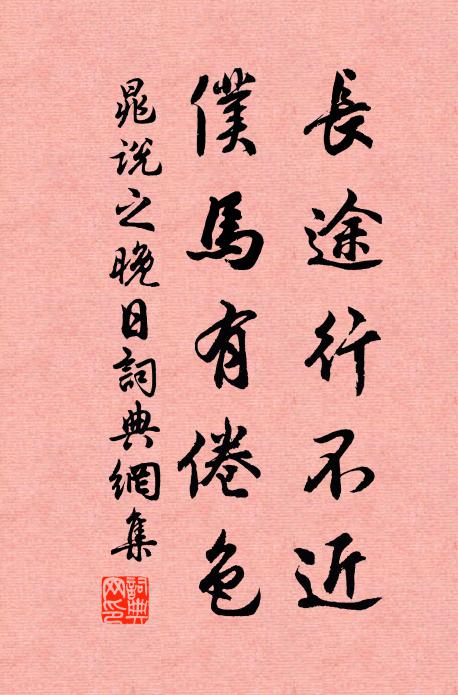 長途行不近
僕馬有倦色
晁說之晚日詞典網集
詞典網印